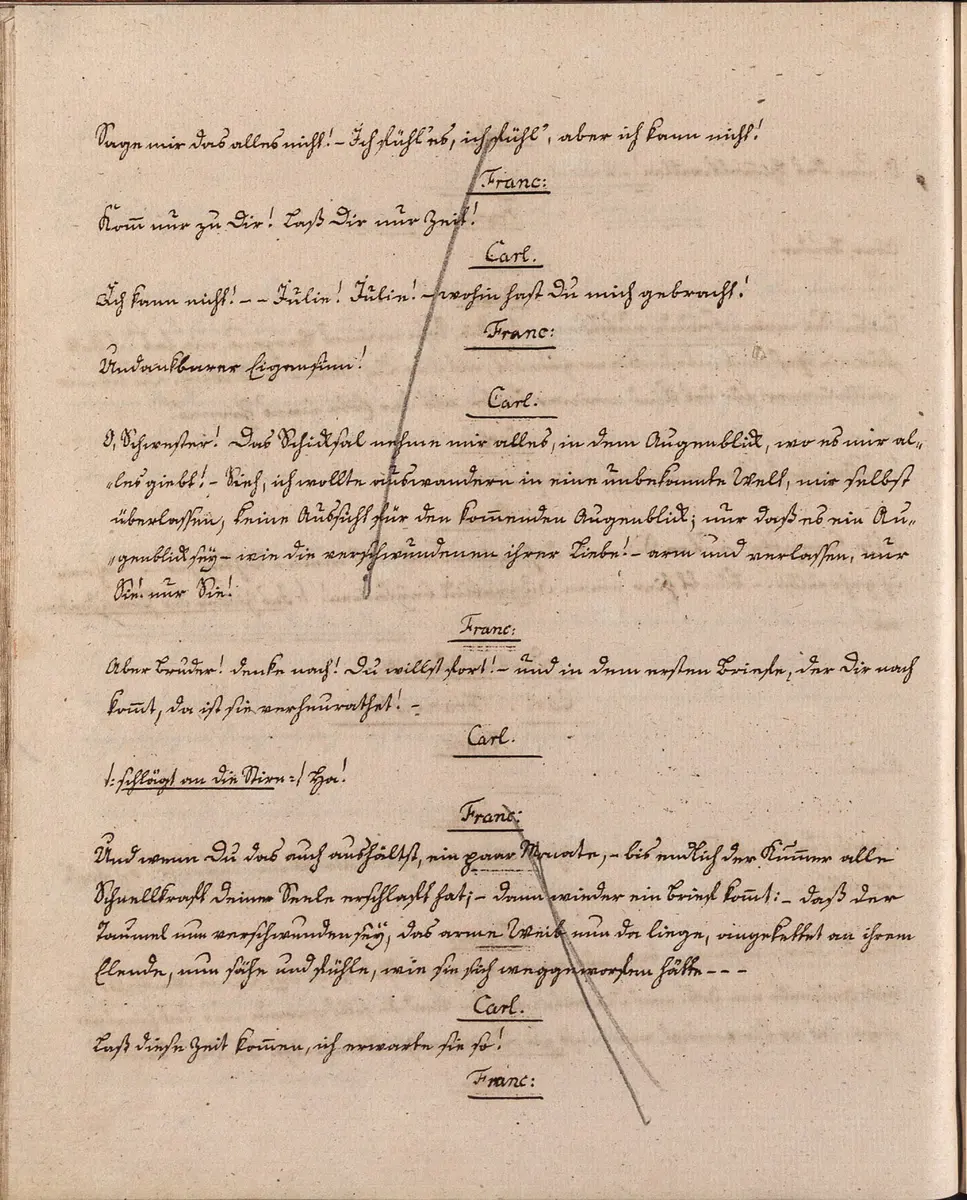 Sage mir das alles nicht! – Ich fühl' es, ich fühl', aber ich kann nicht!
Franc:
Kom̅ nur zu Dir! Laß Dir nur Zeit!
Carl.
Ich kann nicht! – – Julie! Julie! – wohin hast Du mich gebracht!
Franc:
Undankbarer Eigensinn!
Carl.
O, Schwester! Das Schicksal nehme mir alles, in dem Augenblick, wo es mir al„
„les giebt! – Sieh, ich wollte auswandern in eine unbekannte Welt, mir selbst
überlassen, keine Aussicht für den kom̅enden Augenblick; nur daß es ein Au„
„genblick sey – wie die verschwundenen ihrer Liebe! – arm und verlassen, nur
Sie! nur Sie!
Franc:
Aber Bruder! denke nach! Du willst fort! – und in dem ersten Briefe, der Dir nach
kom̅t, da ist sie verheurathet! –
Carl.
/: schlägt an die Stirn :/ Ha!
Franc:
Und wenn Du das auch aushältst, ein paar Monate, – bis endlich der Kum̅er alle
Schnellkraft deiner Seele erschlafft hat; – dann wieder ein Brief kom̅t: – daß der
Taumel nun verschwunden sey, das arme Weib nun da liege, angekettet an ihrem
Elende, nun sähe und fühle, wie sie sich weggeworfen hätte – – –
Carl.
Laß diese Zeit kom̅en, ich erwarte sie so!
Franc: